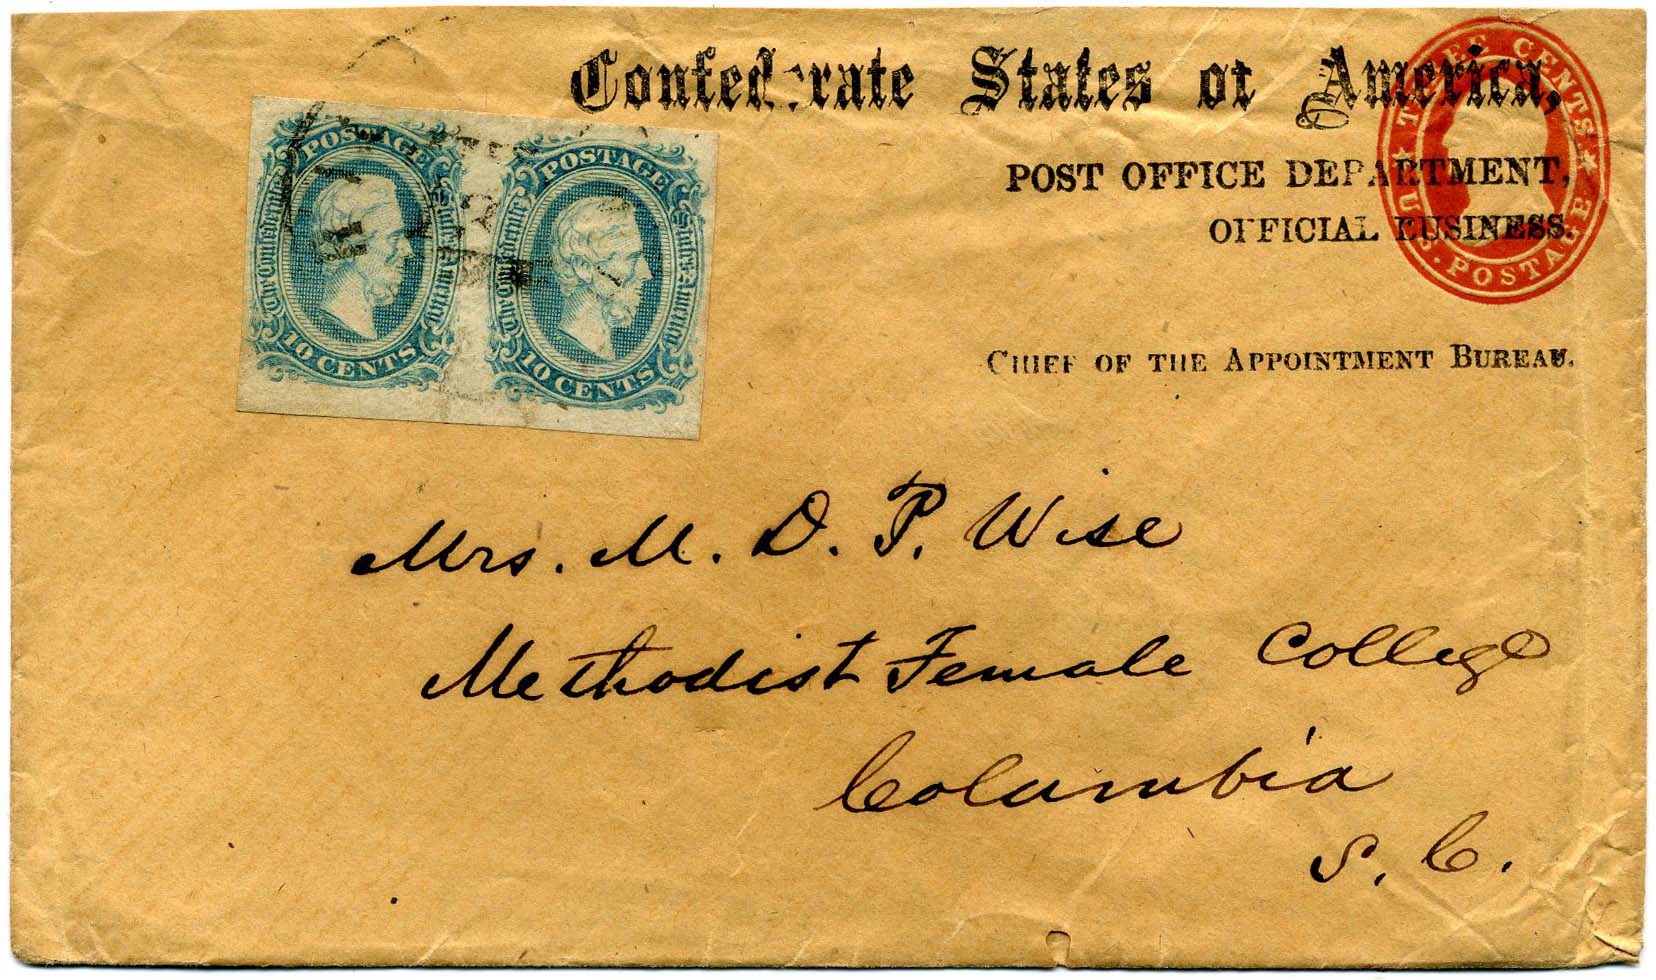 Confederate States of America,
POST OFFICE DEPARTMENT,
OFFICIAL BUSINESS.
CHIEF OF THE APPOINTMENT BUREAU.
THREE CENTS
U.S. POSTAGE
POSTAGE
The Confederate States of America
10 CENTS
POSTAGE
The Confederate States of America
10 CENTS
Mrs. M. D. P. Wise
Methodist Female College
Columbia
S. C.